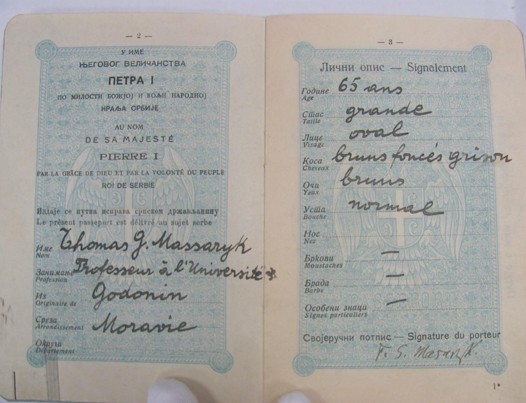 — 2 —
У ИМЕ
ЊЕГОВОГ ВЕЛИЧАНСТВА
ПЕТРА I
ПО МИЛОСТИ БОЖЈОЈ И ВОЉИ НАРОДНОЈ
КРАЉА СРБИЈЕ
AU NOM
DE SA MAJESTÉ
PIERRE I
PAR LA GRÂCE DE DIEU ET PAR LA VOLONTÉ DU PEUPLE
ROI DE SERBIE
Издаје се путна исправа српском држављанину
Le présent passeport est délivré au sujet serbe
Име Thomas G. Massaryk
Nom
Занимање Professeur à l'Université
Profession
Из Godonin
Originaire de
Среза Moravie
Arrondissement
Округа
Département
— 3 —
Лични опис — Signalement
Године 65 ans
Age
Стас grande
Taille
Лице oval
Visage
Коса bruns foncés grison
Cheveux
Очи bruns
Yeux
Уста normal
Bouche
Нос
Nez
Бркови —
Moustaches
Брада —
Barbe
Особени знаци —
Signes particuliers
Својеручни потпис — Signature du porteur
T. G. Masaryk
1*